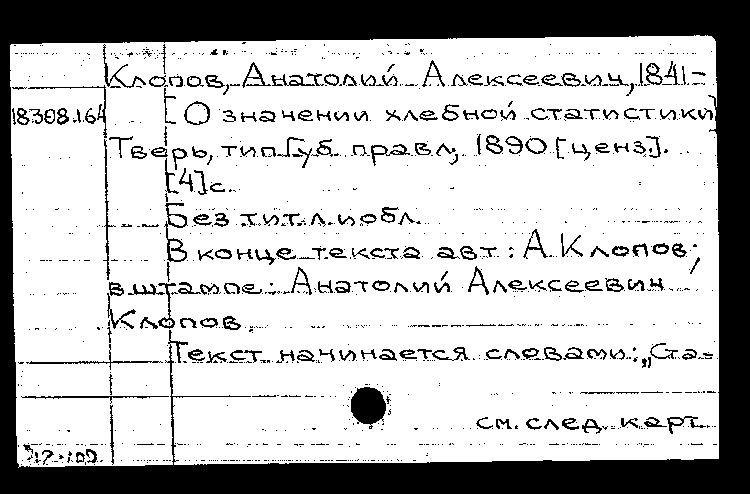 Клопов, Анатолий Алексеевич, 1841-
18308.164 [О значении хлебной статистики]
Тверь, тип. Губ. правл., 1890 [ценз].
[4]с.
Без тит. л. и обл.
В конце текста авт.: А. Клопов;
в штампе: Анатолий Алексеевич
Клопов.
Текст начинается словами: „Ста-
см. след. карт.